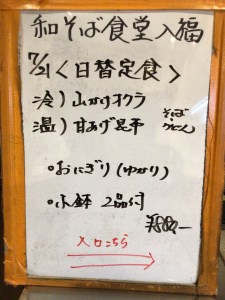 和そば食堂入福
7/21<日替定食>
冷)山かけオクラ
温)甘あげ昆布
そば
うどん
○おにぎり(ゆかり)
○小鉢 2品付
入口こちら